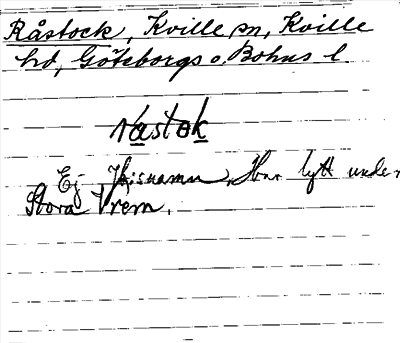 Råstock, Kville sn, Kville
hd, Göteborgs o. Bohus l.
råstok
Ej Har lytt under
Stora Vrem.